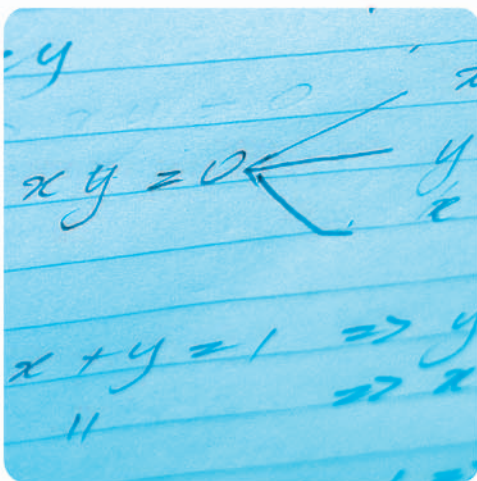 y
xy = 0
y
x
x + y = 1 => y
" => x